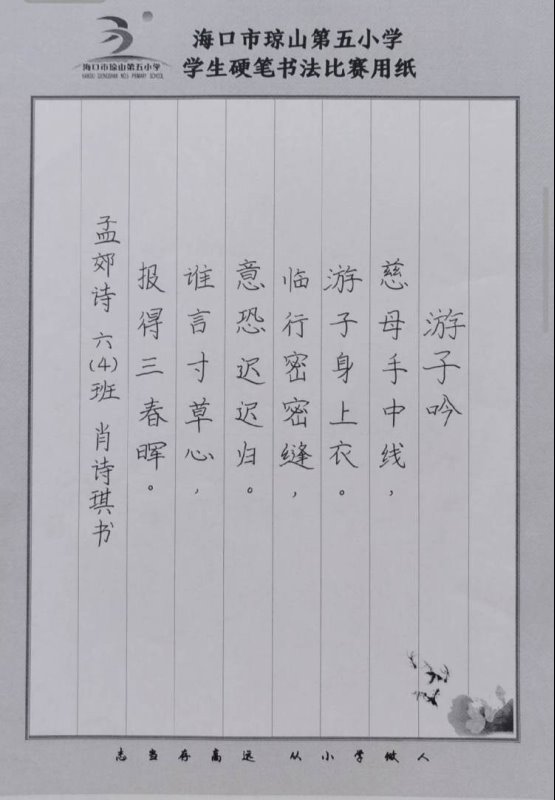 海口市琼山第五小学
HAIKOU QIONGSHAN NO.5 PRIMARY SCHOOL
海口市琼山第五小学
学生硬笔书法比赛用纸
游子吟
慈母手中线，
游子身上衣。
临行密密缝，
意恐迟迟归。
谁言寸草心，
报得三春晖。
孟郊诗 六(4)班 肖诗琪书
志当存高远 从小学做人